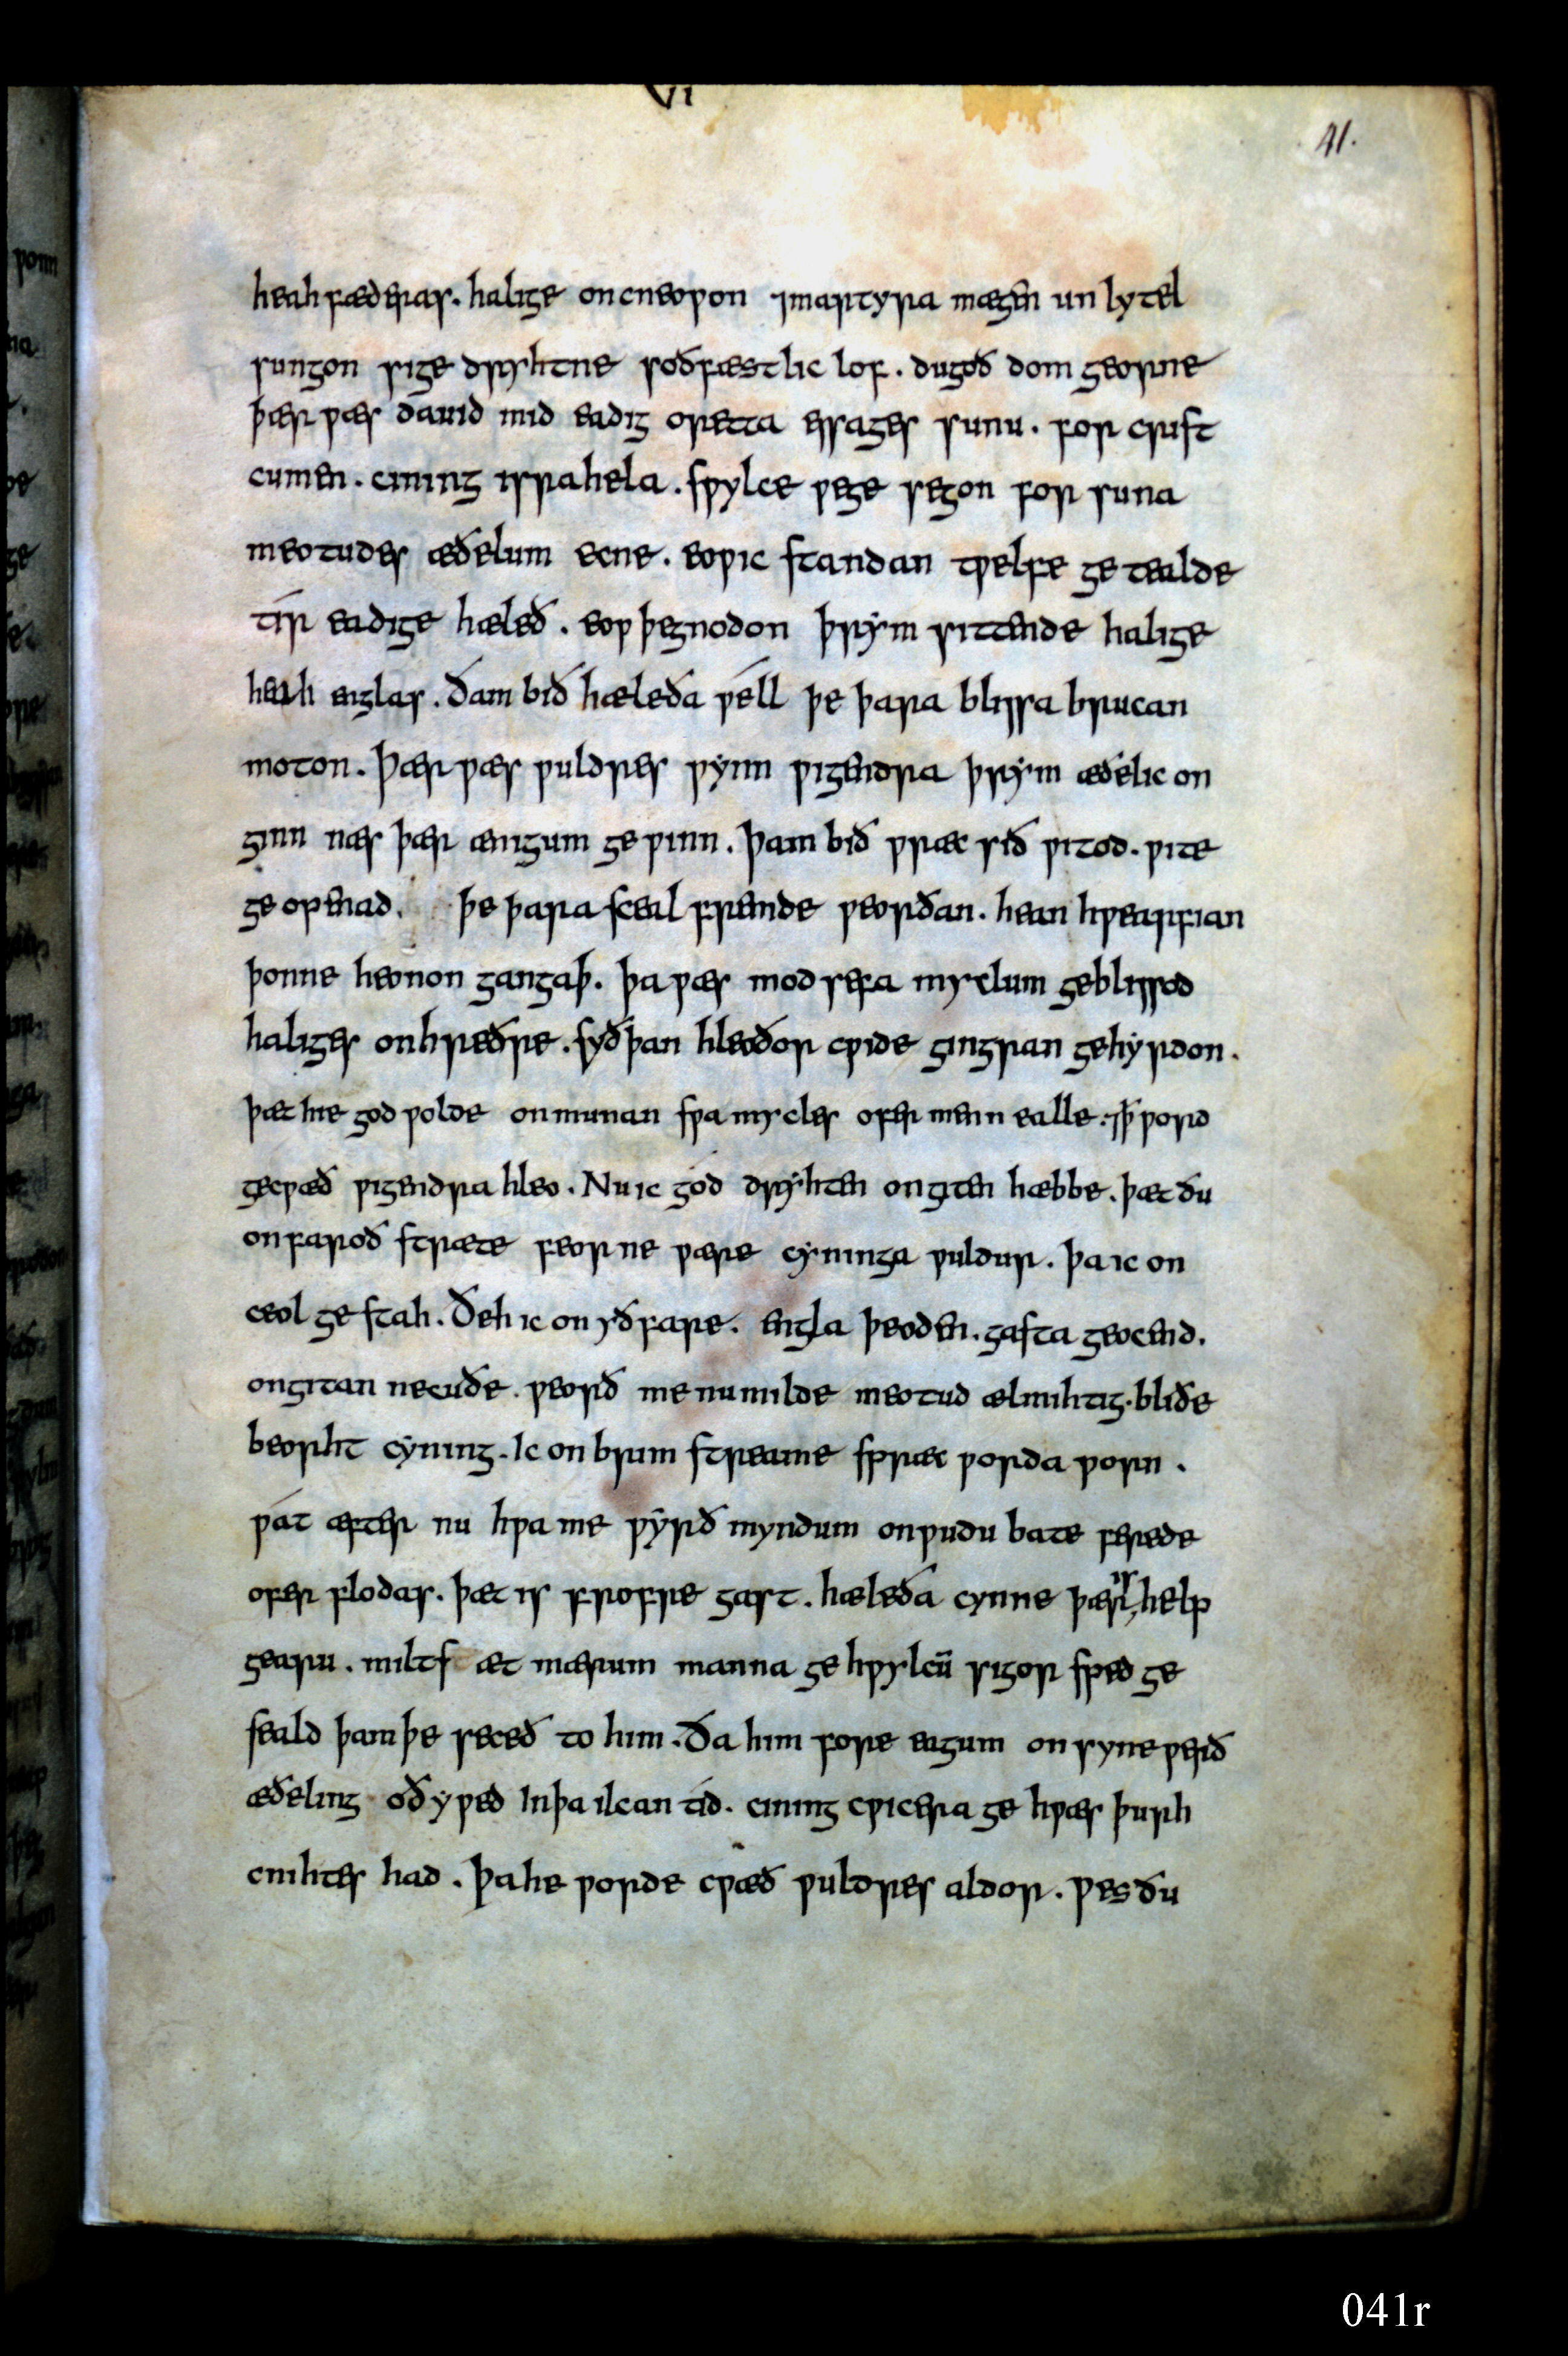 VI
41.
heahfæderas. halige oncneoƿon ⁊martyra mægen̄ un lytel
sungon sige dryhtne soðfæstlic lof. dugoð dom georne
þær ƿæs dauid mid eadig oretta essages sunu. for crist
cumen. cining israhela. sƿylce ƿege segon for suna
meotudes æðelum ecne. eoƿic standan tƿelfe ge tealde
tír eadige hæleð. eoƿ þegnodon þrym sittende halige
heah englas. ðam bið hæleða ƿéll þe þara blissa brucan
moton. Þær ƿæs ƿuldres ƿynn ƿigendra þrym æðelic on
ginn næs þær ænigum ge ƿinn. Þam bið ƿræc sið ƿitod. ƿite
ge openad. þe þara sceal fremde ƿeorðan. hean hƿearfian
þonne heonon gangaþ. þa ƿæs mod sefa myclum geblissod
haliges onhreðre. syðþan hleoðor cƿide gingran gehyrdon.
þæt hie god ƿolde onmunan sƿa mycles ofer menn ealle. ⁊ꝥ ƿord
gecƿæð ƿigendra hleo. Nu ic gód dryhten ongiten hæbbe. þæt ðu
onfaroð stræte feor ne ƿære cyninga ƿuldur. þa ic on
ceol ge stah. ðeh ic on yðfare. engla þeoden. gasta geocend.
ongitan necuðe. ƿeorð me nu milde meotud ælmihtig. bliðe
beorht cyning. Ic on brim streame sƿræc ƿorda ƿorn.
ƿát æfter nu hƿa me ƿyrð myndum onƿudu bate ferede
ofer flodas. þæt is frofre gast. hæleða cynne þær is help
gearu. milts æt mærum manna ge hƿylcū sigor sped ge
seald þam þe seceð to him. Ða him fore eagum onsyne ƿerð
æðeling oðyƿed Inþa ilcan tíd. cining cƿicera ge hƿæs þurh
cnihtes had. Þa he ƿorde cƿæð ƿuldres aldor. ƿes ðu
041r